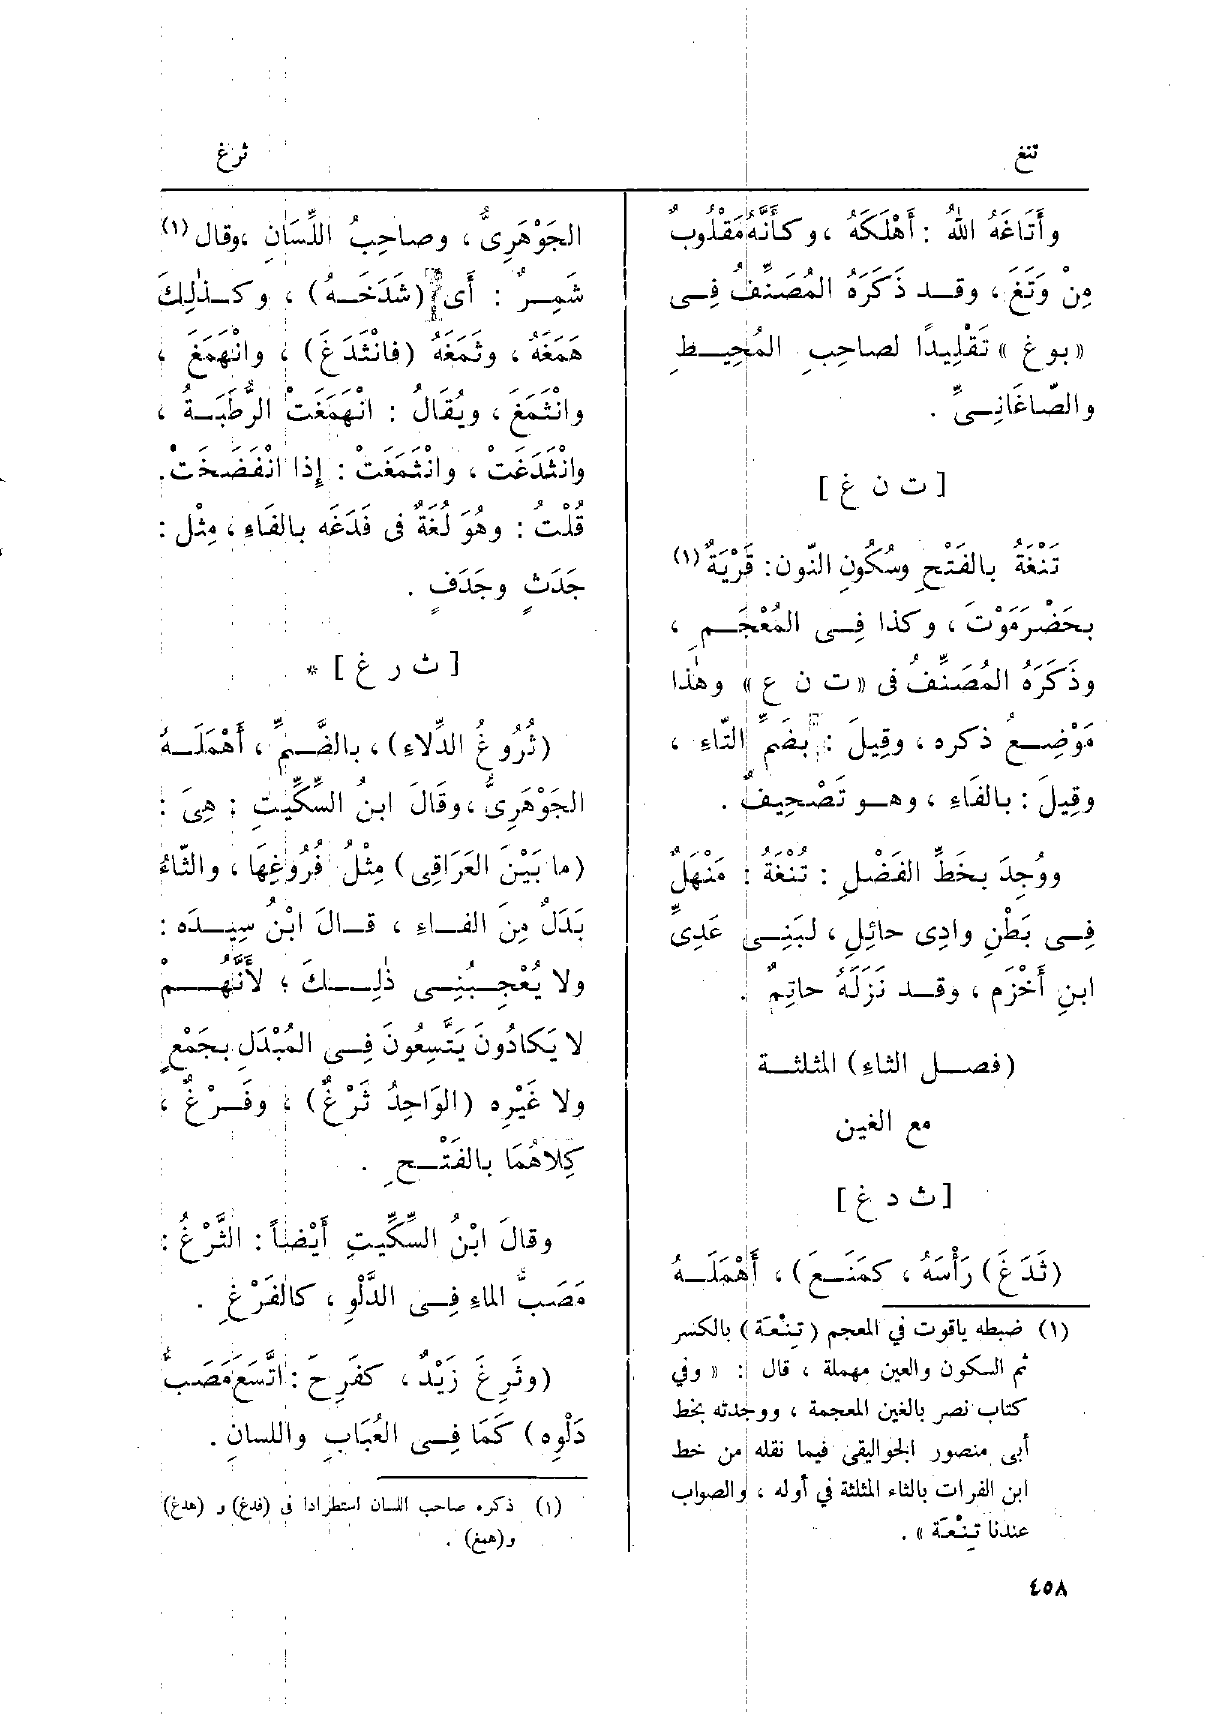 تنغ
ثرغ
وأَتَاغَهُ اللهُ : أَهْلَكَهُ ، وكأَنَّهُ مَقْلُوبٌ
مِنْ وَتَغَ ، وقـد ذَكَرَهُ المُصَنِّفُ فِـى
« بوغ » تَقْلِيدًا لصاحِبِ المُحِيـطِ
والصّاغَانِـىِّ .
[ ت ن غ ]
تَنْغَةُ بالفَتْحِ وسُكُونِ النّون : قَرْيَةٌ (١)
بحَضْرَمَوْتَ ، وكذا فِـى المُعْجَـمِ ،
وذَكَرَهُ المُصَنِّفُ فى « ت ن ع » وهٰذا
مَوْضِـعُ ذكره ، وقِيلَ : بضَمِّ التّاءِ ،
وقِيلَ : بالفَاءِ ، وهـو تَصْحِيفٌ .
ووُجِدَ بخَطِّ الفَضْلِ : تُنْغَةُ : مَنْهَلٌ
فِـى بَطْنِ وادِى حائِلِ ، لبَنِـى عَدِىِّ
ابنِ أَخْزَم ، وقـد نَزَلَهُ حاتِمٌ .
(فصـل الثاءِ) المثلثـة
مع الغين
[ ث د غ ]
(ثَدَغَ) رَأْسَهُ ، كمَنَـعَ) ، أَهْمَلَـهُ
(١) ضبطه ياقوت في المعجم (تِنْعَة) بالكسر
ثم السكون والعين مهملة ، قال : « وفي
كتاب نصر بالغين المعجمة ، ووجدته بخط
أبى منصور الجواليقى فيما نقله من خط
ابن الفرات بالثاء المثلثة في أوله ، والصواب
عندنا تِنْعَة » .
الجَوْهَرِىُّ ، وصاحِبُ اللِّسَانِ ، وقال (١)
شَمِـرٌ : أَى (شَدَخَـهُ) ، وكـذٰلِكَ
هَمَغَهُ ، وثَمَغَهُ (فانْثَدَغَ) ، وانْهَمَغَ ،
وانْثَمَغَ ، ويُقَالُ : انْهَمَغَتْ الرُّطَبَـةُ ،
وانْثَدَغَتْ ، وانْثَمَغَتْ : إِذا انْفَضَخَتْ .
قُلْتُ : وهُوَ لُغَةٌ فى فَدَغَه بالفَاءِ ، مِثْل :
جَدَثٍ وجَدَفٍ .
[ ث ر غ ] *
(ثُرُوغُ الدِّلاءِ) ، بالضَّـمِّ ، أَهْمَلَـهُ
الجَوْهَرِىُّ ، وقَالَ ابنُ السِّكِّيتِ : هِىَ :
(ما بَيْنَ العَرَاقِى) مِثْلُ فُرُوغِهَا ، والثّاءُ
بَدَلٌ مِنَ الفـاءِ ، قـالَ ابْنُ سِيـدَه :
ولا يُعْجِـبُنِـى ذٰلِـكَ ؛ لأَنَّهُـمْ
لا يَكادُونَ يَتَّسِعُونَ فِـى المُبْدَلِ بجَمْعٍ
ولا غَيْرِه (الوَاحِدُ ثَرْغٌ) ، وفَـرْغٌ ،
كِلاهُمَا بالفَتْـحِ .
وقالَ ابْنُ السِّكِّيتِ أَيْضاً : الثَّرْغُ :
مَصَبُّ الماءِ فِـى الدَّلْوِ ، كالفَرْغِ .
(وثَرِغَ زَيْدٌ ، كفَرِحَ : اتَّسَعَ مَصَبُّ
دَلْوِه) كَمَا فِـى العُبَابِ واللسانِ .
(١) ذكره صاحب اللسان استطرادا فى (فدغ) و (هدغ)
و(همغ) .
٤٥٨